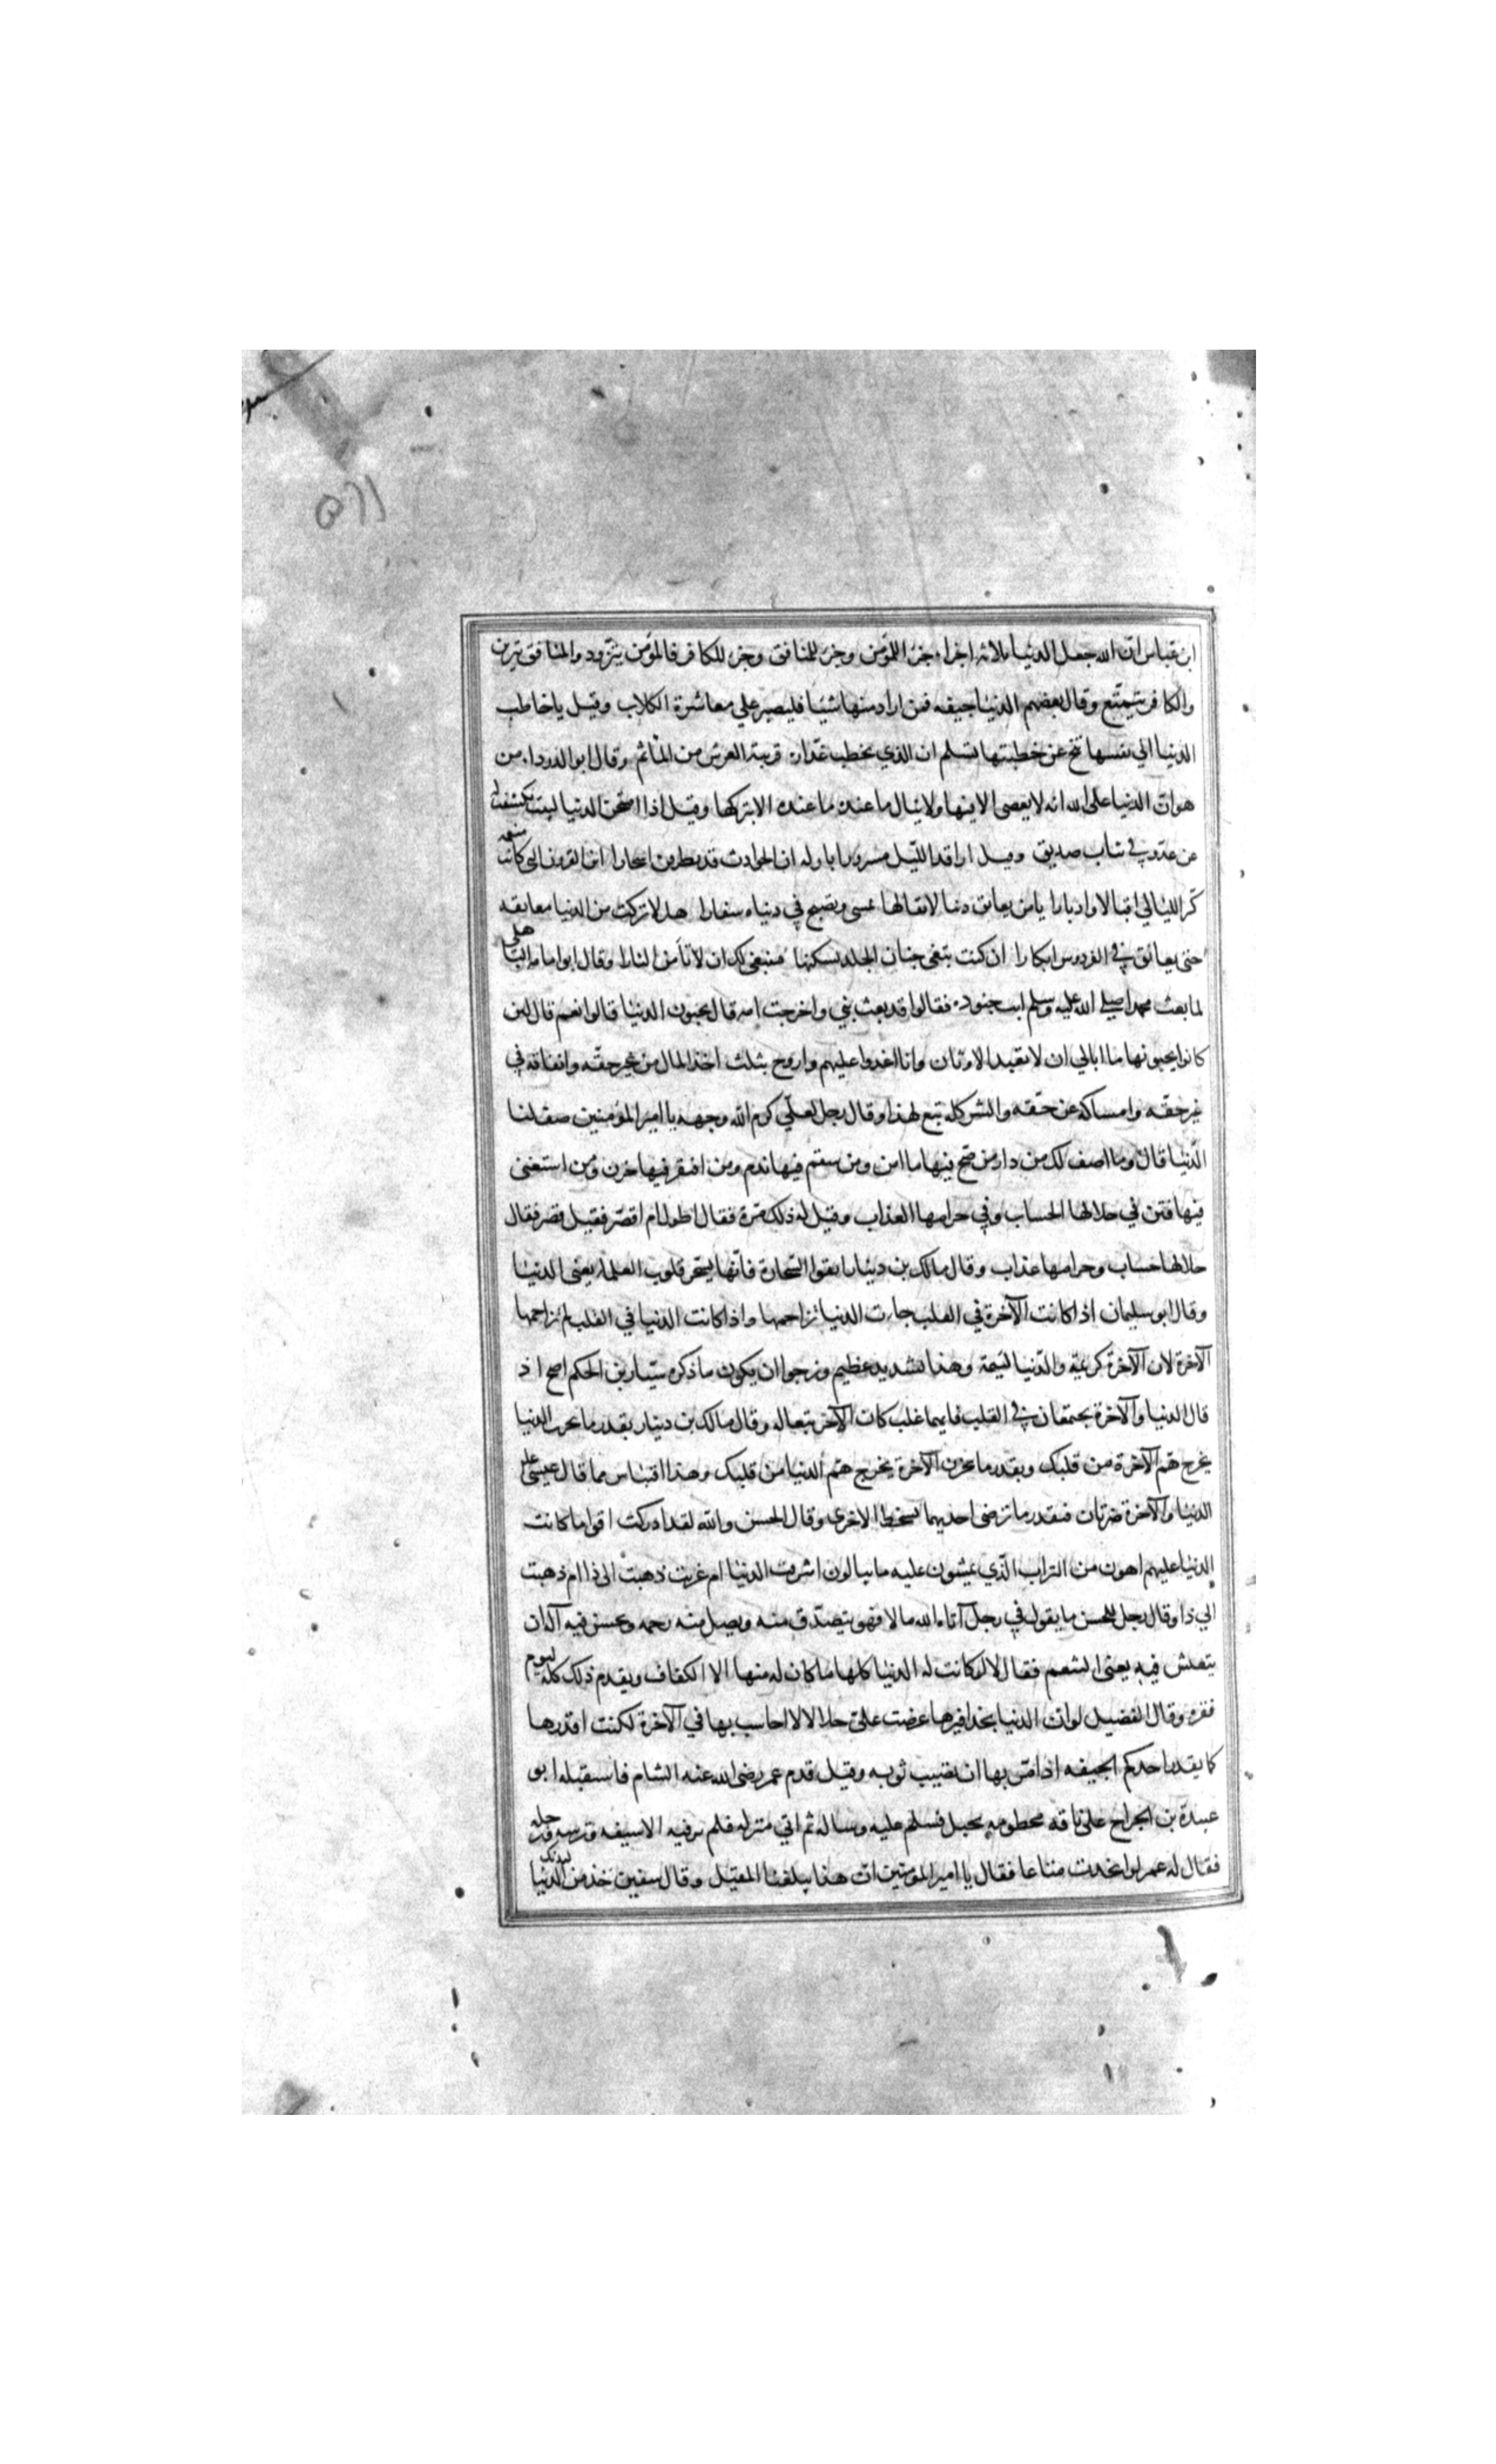 ابن عباس ان الله جعل الدنيا ثلاثة اجزاء جزء للمؤمن وجزء للمنافق وجزء للكافر فالمؤمن يتزود والمنافق يتزين
والكافر يتمتع وقال بعضهم الدنيا جيفه فمن اراد منها شيئا فليصبر علي معاشرة الكلاب وقيل يا خاطب
الدنيا الي نفسها تنح عن خطبتها تسلم ان الذي تخطب غدارة قريبة العرس من المأتم وقال ابو الدرداء من
هوان الدنيا على الله انه لا يعصى الا فيها ولا ينال ما عنده ما عنده الا بتركها وقيل اذا امتحن الدنيا لبيب تكشفت له
عن عدو في ثياب صديق وقيل ا راقد الليل مسرورا باوله ان الحوادث قد يطرقن اسحارا افنى القرون التي كانت منعمة
كر الليالي اقبالا وادبارا يا من يعانق دنيا لا بقا لها يمسى ويصبح في دنياه سفارا هلا تركت من الدنيا معانقه
حتى يعانق في الفردوس ابكارا ان كنت تبغى جنان الخلد تسكنها فينبغى لك ان لا تأمن النارا وقال ابو امامه الباهلى
لما بعث محمد صلى الله عليه وسلم ابليس جنوده فقالوا قد بعث نبي واخرجت امه قال يحبون الدنيا قالوا نعم قال لئن
كانوا يحبونها ما ابالي ان لا يعبدوا الاوثان وانا اغدوا عليهم واروح بثلث اخذ المال من غير حقه وانفاقه في
غير حقه وامساكه عن حقه والشر كله تبع لهذا وقال رجل لعلي كرم الله وجهه يا امير المؤمنين صف لنا
الدنيا قال وما اصف لك من دار من صح فيها ما امن ومن سقم فيها ندم ومن افتقر فيها حزن ومن استغنى
فيها فتن في حلالها الحساب وفي حرامها العذاب وقيل له ذلك مرة فقال اطول ام اقصر فقيل قصر فقال
حلالها حساب وحرامها عذاب وقال مالك بن دينار اتقوا السحارة فانها تسحر قلوب العلماء يعنى الدنيا
وقال ابو سليمان اذا كانت الآخرة في القلب جاءت الدنيا تزاحمها واذا كانت الدنيا في القلب لم تزاحمها
الآخرة لان الآخرة كريمة والدنيا لئيمة وهذا تشديد عظيم ونرجوا ان يكون ما ذكره سيار بن الحكم اصح اذ
قال الدنيا والآخرة يجتمعان في القلب فايهما غلب كان الآخر تبعا له وقال مالك بن دينار بقدر ما تحزن للدنيا
يخرج هم الآخرة من قلبك وبقدر ما تحزن الآخرة يخرج هم الدنيا من قلبك وهذا اقتباس مما قال عيسى علم
الدنيا والآخرة ضرتان فبقدر ما ترضى احديهما تسخط الاخرى وقال الحسن والله لقد ادركت اقواما كانت
الدنيا عليهم اهون من التراب الذي يمشون عليه ما يبالون اشرقت الدنيا ام غربت ذهبت الى ذا ام ذهبت
الي ذا وقال رجل للحسن ما يقول في رجل آتاه الله مالا فهو يتصدق منه ويصل منه رحمه ويحسن فيه أله ان
يتعيش فيه يعنى التنعم فقال لا لو كانت له الدنيا كلها ما كان له منها الا الكفاف ويقدم ذلك كله ليوم
فقره وقال الفضيل لو ان الدنيا بحذافيرها عرضت على حلالا لا احاسب بها في الآخرة لكنت اقذرها
كما يقذر احدكم الجيفه اذا مر بها ان تصيب ثوبه وقيل قدم عمر رضى الله عنه الشام فاستقبله ابو
عبيدة بن الجراح على ناقه مخطومه بحبل فسلم عليه وساله ثم اتي منزله فلم ير فيه الا سيفه وترسه ورحله
فقال له عمر لو اتخذت متاعا فقال يا امير المؤمنين ان هذا يبلغنا المقيل وقال سفين خذ من الدنيا لبدنك